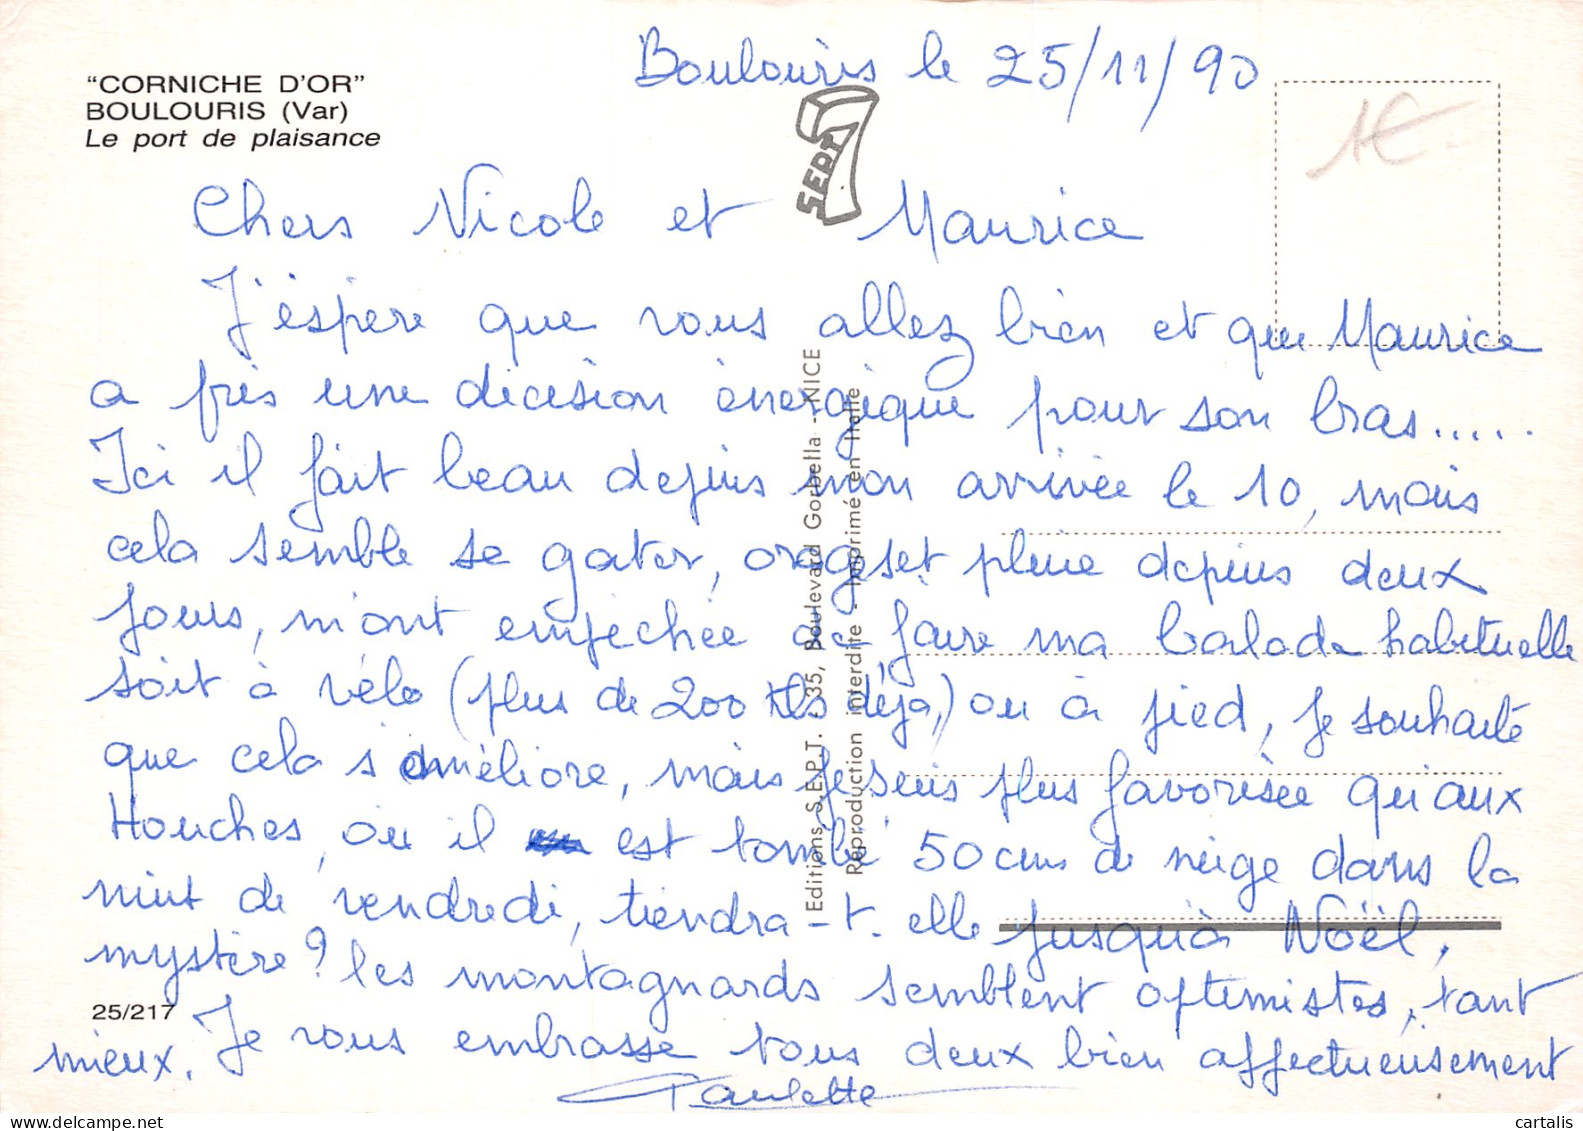 Boulouris le 25/11/90
"CORNICHE D'OR"
BOULOURIS (Var)
Le port de plaisance
1€
SEPT 7
Chers Nicole et Maurice
J'éspère que vous allez bien et que Maurice
a pris une décision énergique pour son bras.....
Ici il fait beau depuis mon arrivée le 10, mais
cela semble se gater, orages et pluie depuis deux
jours, m'ont empéchée de faire ma balade habituelle
soit à vélo (plus de 200 Kls déja,) ou à pied, je souhaite
que cela s'améliore, mais je suis plus favorisée qu'aux
Houches, ou il est tombé 50 cms de neige dans la
nuit de vendredi, tiendra-t-elle jusqu'à Noël,
mystère? les montagnards semblent optimistes, tant
mieux. Je vous embrasse tous deux bien affectueusement
Paulette
25/217
Editions S.E.P.T. - 35, Boulevard Gorbella - NICE
Reproduction interdite - Imprimé en Italie
delcampe.net
cartalis